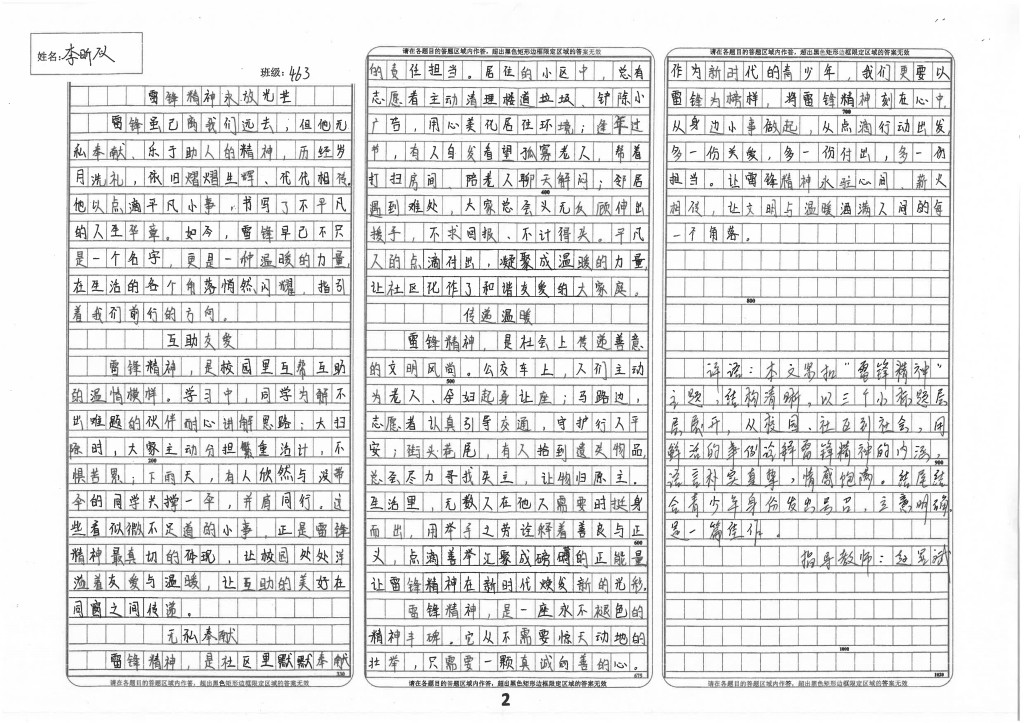 姓名：李昕欣
班级：463
请在各题目的答题区域内作答，超出黑色矩形边框限定区域的答案无效
雷锋精神永放光芒
雷锋虽已离我们远去，但他无
私奉献、乐于助人的精神，历经岁
月洗礼，依旧熠熠生辉、代代相传。
他以点滴平凡小事，书写了不平凡
的人生华章。如今，雷锋早已不只
是一个名字，更是一种温暖的力量，
在生活的各个角落悄然闪耀，指引
着我们前行的方向。
互助友爱
雷锋精神，是校园里互帮互助
的温情模样。学习中，同学为解不
出难题的伙伴耐心讲解思路；大扫
除时，大家主动分担繁重活计，不
200
惧苦累；下雨天，有人欣然与没带
伞的同学共撑一伞，并肩同行。这
些看似微不足道的小事，正是雷锋
精神最真切的体现，让校园处处洋
溢着友爱与温暖，让互助的美好在
同窗之间传递。
无私奉献
雷锋精神，是社区里默默奉献
330
请在各题目的答题区域内作答，超出黑色矩形边框限定区域的答案无效
请在各题目的答题区域内作答，超出黑色矩形边框限定区域的答案无效
的责任担当。居住的小区中，总有
志愿者主动清理楼道垃圾、铲除小
广告，用心美化居住环境；逢年过
节，有人自发看望孤寡老人，帮着
打扫房间、陪老人聊天解闷；邻居
400
遇到难处，大家总会义无反顾伸出
援手，不求回报、不计得失。平凡
人的点滴付出，凝聚成温暖的力量，
让社区化作了和谐友爱的大家庭。
传递温暖
雷锋精神，是社会上传递善意
的文明风尚。公交车上，人们主动
500
为老人、孕妇起身让座；马路边，
志愿者认真引导交通，守护行人平
安；街头巷尾，有人拾到遗失物品，
总会尽力寻找失主，让物归原主。
生活里，无数人在他人需要时挺身
而出，用举手之劳诠释着善良与正
600
义，点滴善举汇聚成磅礴的正能量
让雷锋精神在新时代焕发新的光彩。
雷锋精神，是一座永不褪色的
精神丰碑。它从不需要惊天动地的
壮举，只需要一颗真诚向善的心。
675
请在各题目的答题区域内作答，超出黑色矩形边框限定区域的答案无效
请在各题目的答题区域内作答，超出黑色矩形边框限定区域的答案无效
作为新时代的青少年，我们更要以
雷锋为榜样，将雷锋精神刻在心中，
700
从身边小事做起，从点滴行动出发，
多一份关爱，多一份付出，多一份
担当。让雷锋精神永驻心间，薪火
相传，让文明与温暖洒满人间的每
一个角落。
800
评语：本文紧扣“雷锋精神”
主题，结构清晰，以三个小标题层
层展开，从校园、社区到社会，用
鲜活的事例诠释雷锋精神的内涵，
900
语言朴实真挚，情感饱满。结尾结
合青少年身份发出号召，立意明确，
是一篇佳作。
指导教师：赵
1000
1020
请在各题目的答题区域内作答，超出黑色矩形边框限定区域的答案无效
2